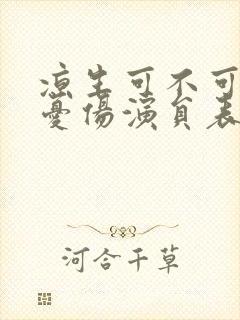 凉生可不可
憂傷演員表
河合千草